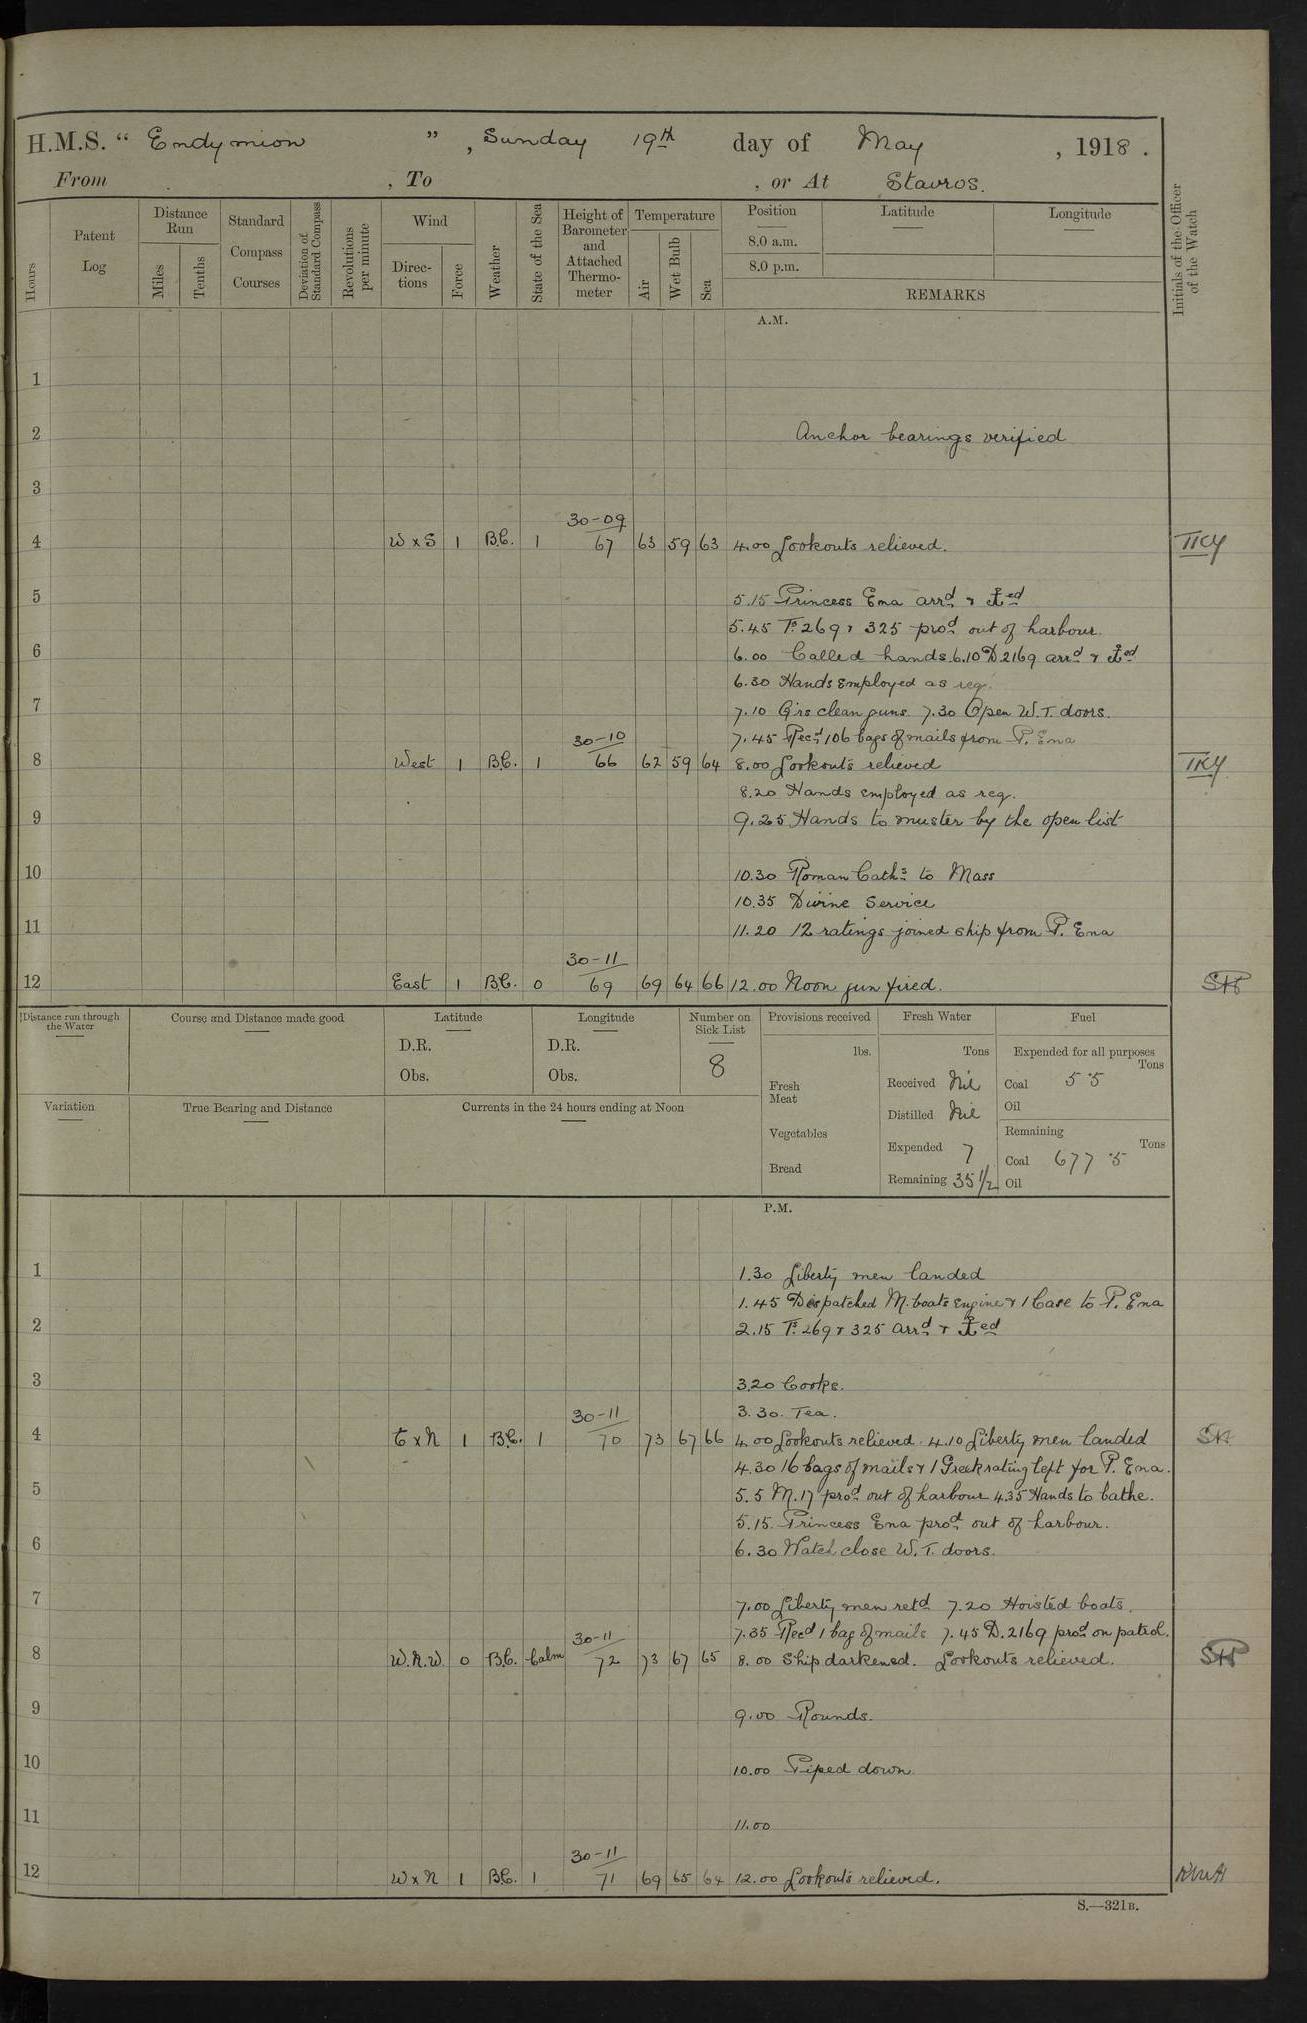 H.M.S. “ Endymion ” , Sunday 19th day of May , 1918 .
From , To , or At Stavros.
Hours
Patent Log
Distance Run
Miles
Tenths
Standard Compass Courses
Deviation of Standard Compass
Revolutions per minute
Wind
Direc- tions
Force
Weather
State of the Sea
Height of Barometer and Attached Thermo- meter
Temperature
Air
Wet Bulb
Sea
Position
8.0 a.m.
8.0 p.m.
Latitude
Longitude
REMARKS
Initials of the Officer of the Watch
A.M.
1
2 Anchor bearings verified
3
30-09
4 W x S 1 B.C. 1 67 63 59 63 4.00 Lookouts relieved. TKY
5 5.15 Princess Ena arrd & ⚓ed
5.45 Ts 269 & 325 prod out of harbour.
6 6.00 Called hands. 6.10 D 2169 arrd & ⚓ed
6.30 Hands employed as req.
7 7.10 Qrs clean guns. 7.30 Open W.T. doors.
30-10 7.45 Recd 106 bags of mails from P. Ena
8 West 1 B.C. 1 66 62 59 64 8.00 Lookouts relieved TKY
8.20 Hands employed as req.
9 9.25 Hands to muster by the open list
10 10.30 Roman Caths to Mass
10.35 Divine Service
11 11.20 12 ratings joined ship from P. Ena
30-11
12 East 1 B.C. 0 69 69 64 66 12.00 Noon gun fired.
Distance run through the Water
Course and Distance made good
Latitude
D.R.
Obs.
Longitude
D.R.
Obs.
Number on Sick List
8
Provisions received
lbs.
Fresh Meat
Vegetables
Bread
Fresh Water
Tons
Received Nil
Distilled Nil
Expended 7
Remaining 35 1/2
Fuel
Expended for all purposes
Tons
Coal 5·5
Oil
Remaining
Tons
Coal 677·5
Oil
Variation
True Bearing and Distance
Currents in the 24 hours ending at Noon
P.M.
1 1.30 Liberty men landed
1.45 Despatched M. boats engine & 1 Case to P. Ena
2 2.15 Ts 269 & 325 arrd & ⚓ed
3 3.20 Cooks.
30-11 3.30. Tea.
4 E x N 1 B.C. 1 70 73 67 66 4.00 Lookouts relieved. 4.10 Liberty men landed
4.30 16 bags of mails & 1 Greek rating left for P. Ena.
5 5.5 M.17 prod out of harbour 4.35 Hands to bathe.
5.15. Princess Ena prod out of harbour.
6 6.30 Watch close W.T. doors.
7 7.00 Liberty men retd 7.20 Hoisted boats.
30-11 7.35 Recd 1 bag of mails 7.45 D.2169 prod on patrol.
8 W.N.W. 0 B.C. Calm 72 73 67 65 8.00 Ship darkened. Lookouts relieved.
9 9.00 Rounds.
10 10.00 Piped down
11 11.00
30-11
12 W x N 1 B.C. 1 71 69 65 64 12.00 Lookouts relieved.
S.—321B.